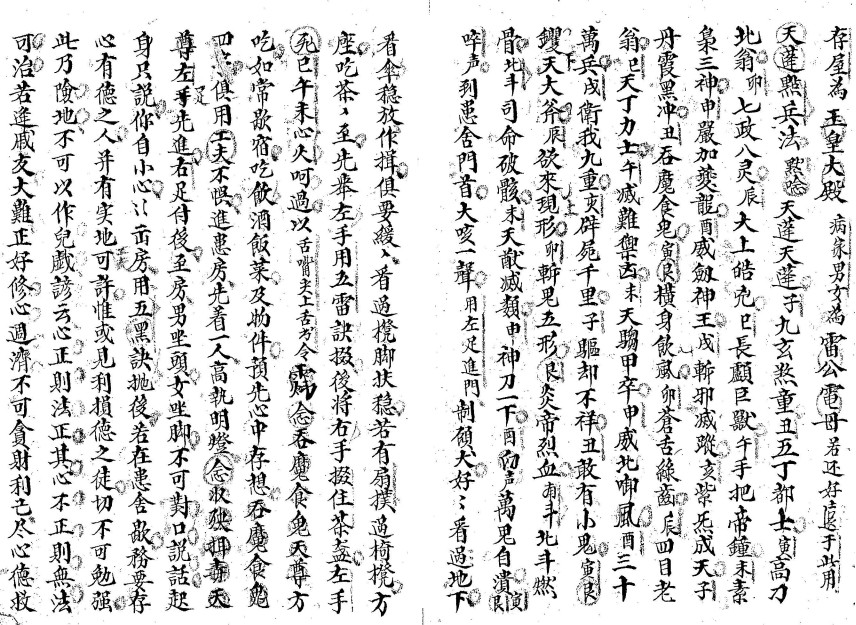 存屋為玉皇大殿 病家男女為雷公電母 若还好 于此用
天蓬㸃兵法 㸃 天蓬天蓬子九玄煞童丑五丁都士寅高刀
北翁卯七政八灵辰大上皓兇巳長顱巨獸午手把帝鐘未素
梟三神申嚴加夔龍酉威劍神王戌斬邪滅蹤亥紫炁成天子
丹霞黑冲丑吞魔食鬼寅艮橫身飲風卯蒼舌綠齒辰四目老
翁巳天丁力士午威難禦凶未天騶甲卒申威北啣風酉三十
萬兵戌衛我九重亥辟屍千里子驅却不祥丑敢有小鬼寅艮
钁天大斧辰欲來現形卯斬鬼五形艮炎帝烈血 斗北斗燃
骨北斗司命破骸未天猷滅類申神刀一下酉 声萬鬼自潰
啐声到患舍門首大咳一聲 用左足進門 制額大好〻看過地下
看傘穩放作揖俱要緩〻看過櫈脚扶穩若有扇撲過椅櫈方
座吃茶〻至先舉左手用五雷訣掇後將右手掇住茶盞左手
死巳午未心火呵過以舌嘴尖上舌 令 念吞魔食鬼天尊方
吃如常歇宿吃飲酒飯菜及物件預先心中存想吞魔食鬼
四 俱用工夫不惧進患房先着一人高執明燈念 天
尊左手足先進右足付後至房男坐頭女坐脚不可對口說話起
身只說你自小心〻出房用五黑訣拋後若在患舍歇務要存
心有德之人并有实地可許惟或見利損德之徒切不可勉强
此乃險地不可以作兒戲諺云心正則法正其心不正則無法
可治若逢戚友大難正好修心週濟不可貪財利己尽心德救